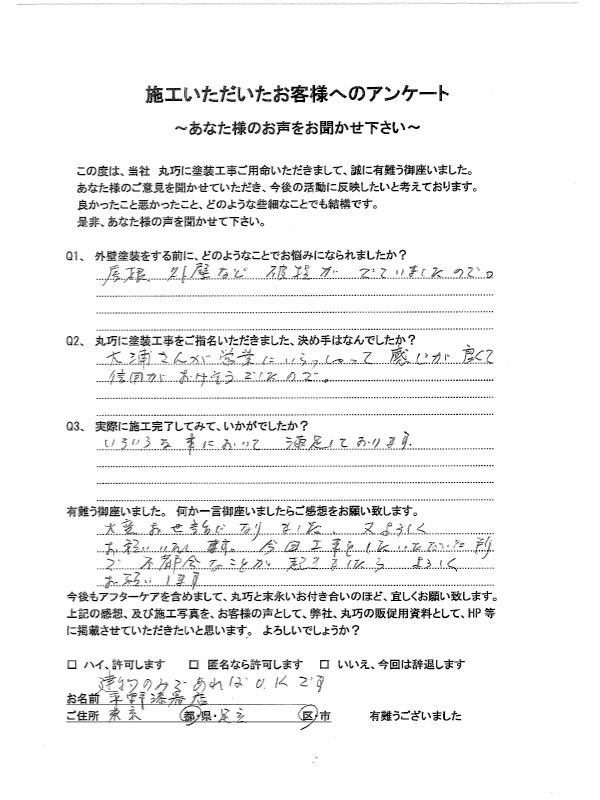 施工いただいたお客様へのアンケート
～あなた様のお声をお聞かせ下さい～
この度は、当社　丸巧に塗装工事ご用命いただきまして、誠に有難う御座いました。
あなた様のご意見を聞かせていただき、今後の活動に反映したいと考えております。
良かったこと悪かったこと、どのような些細なことでも結構です。
是非、あなた様の声を聞かせて下さい。
Q1、 外壁塗装をする前に、どのようなことでお悩みになられましたか？
屋根、外壁など 破損が でていましたので。
Q2、 丸巧に塗装工事をご指名いただきました、決め手はなんでしたか？
大浦さんが営業にいらっしゃって 感じが 良くて
信用が おけそうでしたので。
Q3、 実際に施工完了してみて、いかがでしたか？
いろいろな事において 満足しております.
有難う御座いました。 何か一言御座いましたらご感想をお願い致します。
大変お世話になりました、又よろしく
お願いいたします。今回工事をしていただいた所
で 不都合なことが 起きましたら よろしく
お願いします
今後もアフターケアを含めまして、丸巧と末永いお付き合いのほど、宜しくお願い致します。
上記の感想、及び施工写真を、お客様の声として、弊社、丸巧の販促用資料として、HP 等
に掲載させていただきたいと思います。 よろしいでしょうか？
□ ハイ、許可します　□ 匿名なら許可します　□ いいえ、今回は辞退します
建物のみであればO.Kです
お名前 平野漆器店
ご住所 東京 都・県・足立 区・市 有難うございました